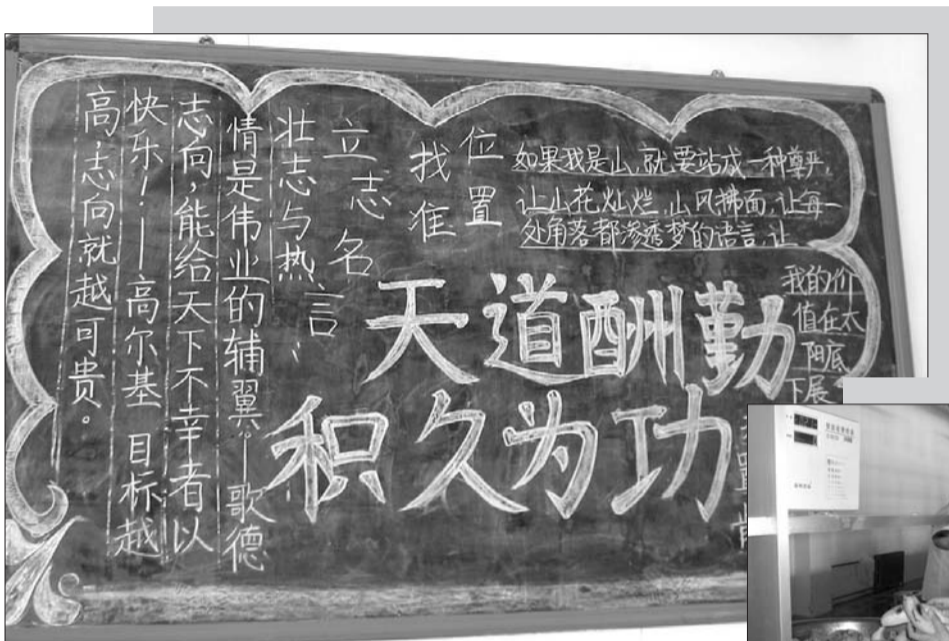 找准
位置
如果我是山,就要站成一种尊严,
让山花灿烂,山风拂面,让每一
处角落都渗透梦的语言,让
我的价
值在太
阳底
下展
天道酬勤
积久为功
立志名言:
壮志与热
情是伟业的辅翼。——歌德
志向,能给天下不幸者以
快乐!——高尔基 目标越
高,志向就越可贵。